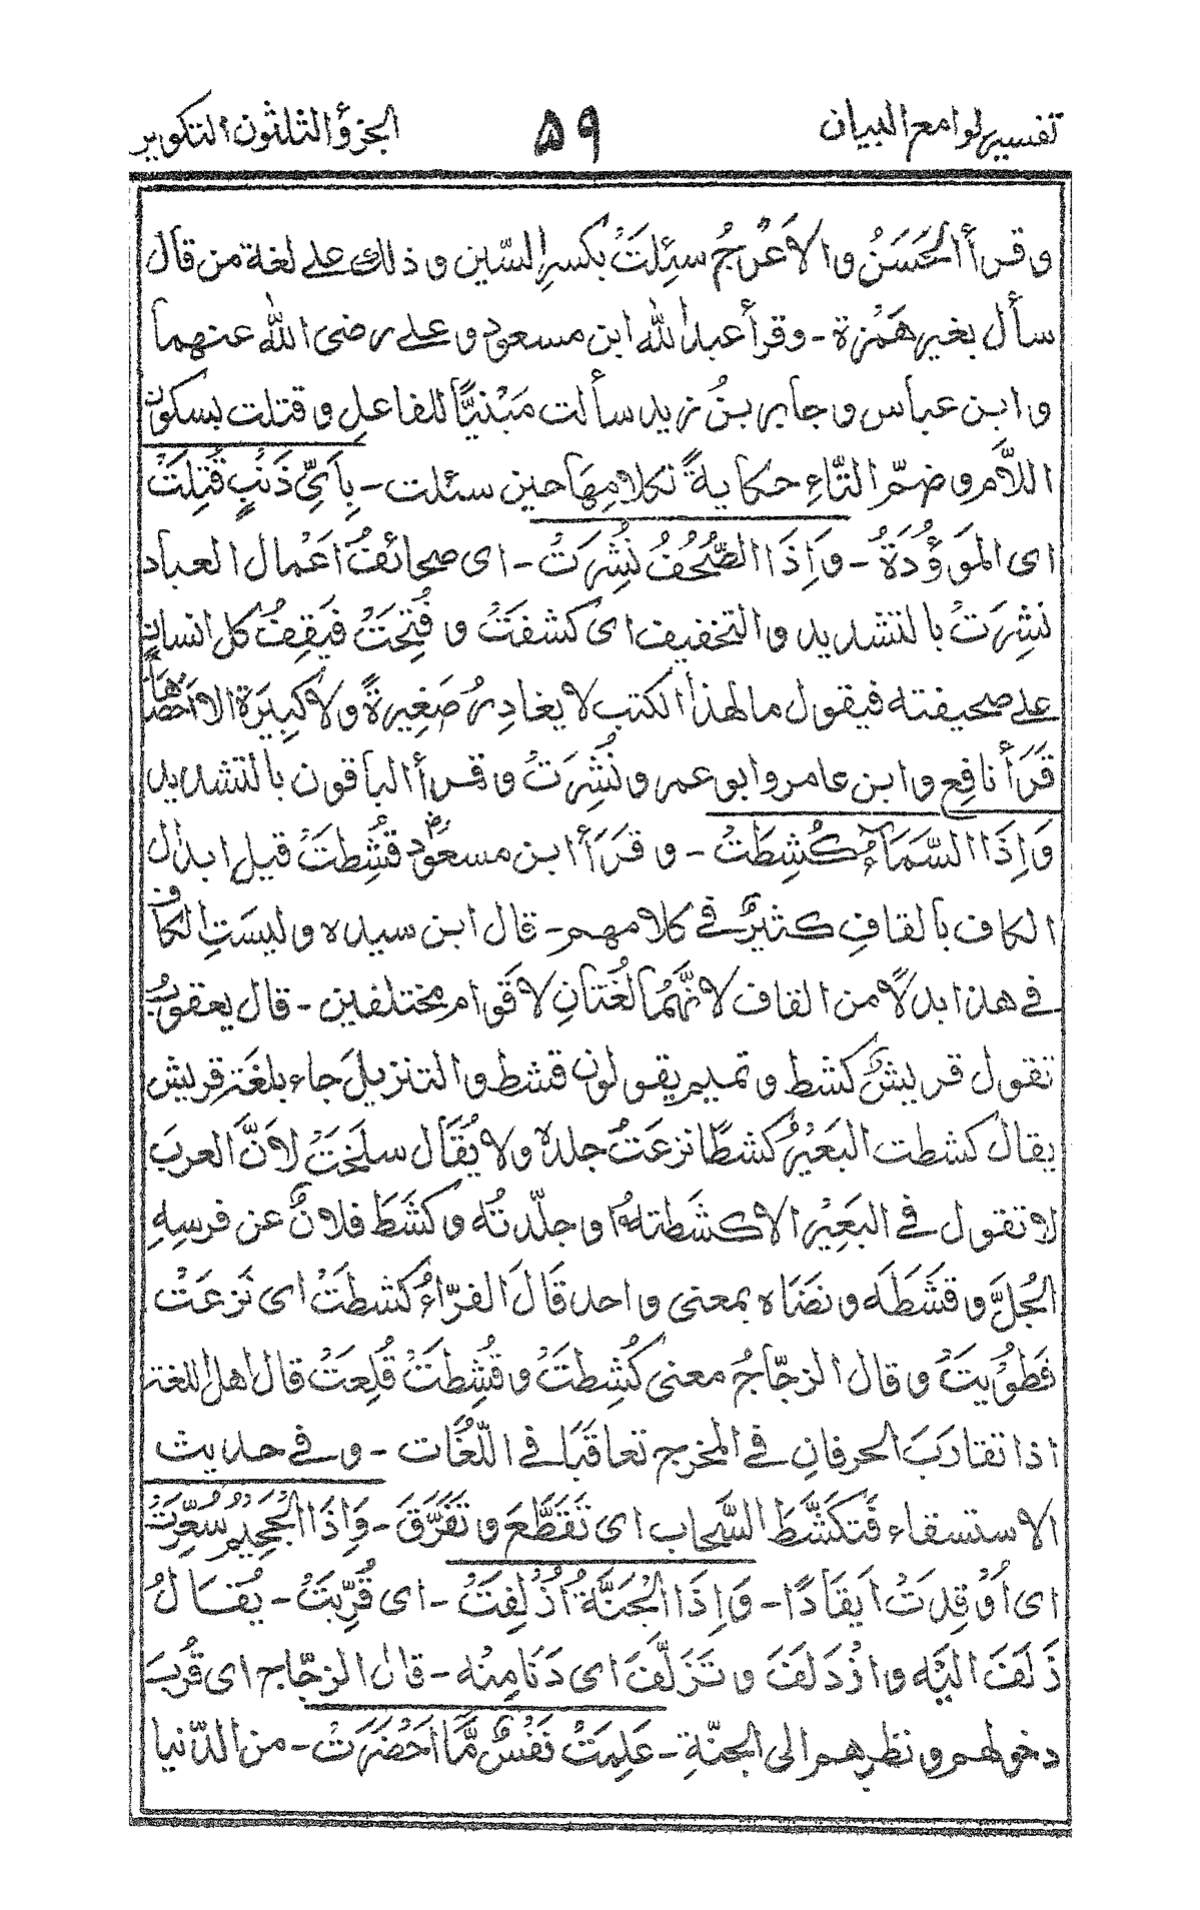 تفسير لوامع البيان ٥٩ الجزؤ الثلثون التكوير
وقرأ الحَسَنُ والاَعْرَجُ سئِلَتْ بكسرِ السّين وذلك على لغة من قال
سأل بغير هَمْزة - وقرأ عبد الله ابن مسعود وعلى رضى الله عنهما
وابن عباس وجابر بنُ زيد سألت مَبْنيًّا للفاعل وقتلت بسكون
اللاَّم وضمّ التَّاءِ حكايةً لكلامِهَا حين سئلت - بِاَىِّ ذَنْبٍ قُتِلَتْ
اى المَوَؤُدَةُ - وَاِذَا الصُّحُفُ نُشِرَتْ - اى صحائفُ اَعْمال العباد
نشِرَتْ بالتشديد والتخفيف اى كشفَتْ وفُتِحَتْ فَيَقِفُ كل انسانٍ
على صحيفته فيقول مالهذا الكتب لا يغادِرُ صَغِيرَةً ولاَ كَبِيَرَة الا اَحْصَاهَا
قَرَأَ نافِع وابن عامر وابو عمر ونُشِرَتْ وقرأ الباقون بالتشديد
وَاِذَا السَّمَآءُ كُشِطَتْ - وقَرَأَ ابن مسعُود قُشِطَتْ قيل ابدال
الكاف بالقافِ كثيرٌ فى كلامهم - قال ابن سيده وليسَتِ الكاف
فى هذا بدلًا من القاف لانَّهُمَا لُغَتَانِ لاقَوام مختلفين - قال يعقوب
تقول قريشٌ كشط وتميم يقولون قشط والتنزيلَ جاء بلغة قريش
يقال كشطت البَعْيرُ كشطًا نزعَتْ جلده ولا يُقَال سلَختْ لاَنَّ العربَ
لا تقول فى البَعِيْرِ الا كشَطتهُ او جلّدتُه وكشَطَ فلانٌ عن فرسِهِ
الجُلَّ وقشَطَه ونضَاه بمعنى واحد قَالَ الفرّاءُ كُشطَتْ اى نَزعَتْ
فَطوُيتْ وقال الزجّاجُ معنى كُشِطتَ وقُشِطتَ قُلِعتْ قال اهل اللغة
اذا تقارَبَ الحرفانِ فى المخرج تعاقبَا فى اللّغَات - وفى حديث
الاستسقاء فَتكَشَّطَ السَّحاب اى تَقَطَّعَ وتَفَرَّقَ - وَاِذَا الْجَحِيْمُ سُعِّرَتْ
اى اَوْقِدَتْ اِيقَادًا - وَاِذَا الْجَنَّةُ اُزْلِفَتْ - اى قُرِّبَتْ - يُقَالُ
زَلَفَ اليْه وازْدَلفَ وتَزَلَّفَ اى دَنَا مِنْه - قال الزجّاج اى قُربَ
دخولهم ونظرهم الى الجنّةِ - عَلِمَتْ نَفْسٌ مَّا اَحْضَرَتْ - من الدّنيا